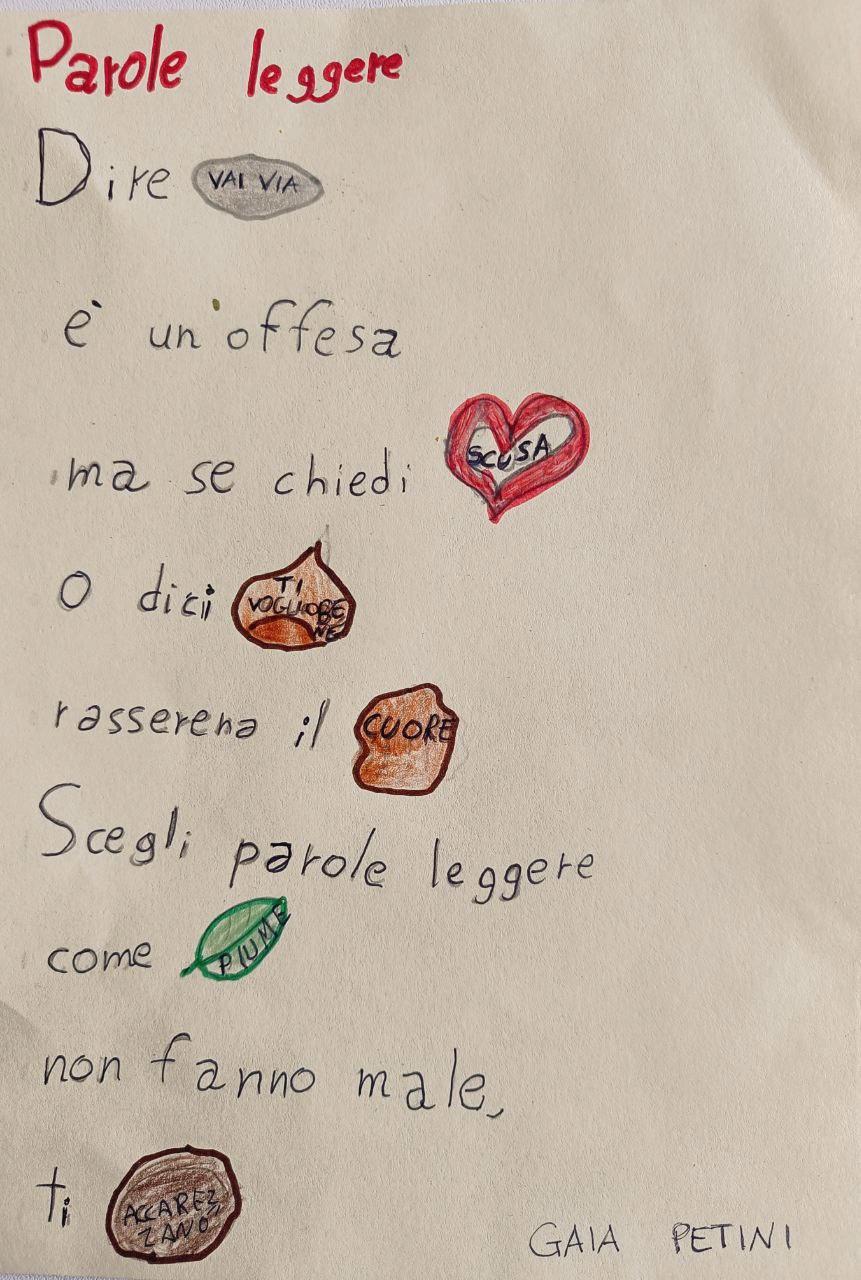 Parole leggere
Dire VAI VIA
è un'offesa
ma se chiedi SCUSA
O dici TI VOGLIO BENE
rasserena il CUORE
Scegli parole leggere
come PIUME
non fanno male,
ti ACCAREZZANO
GAIA PETINI